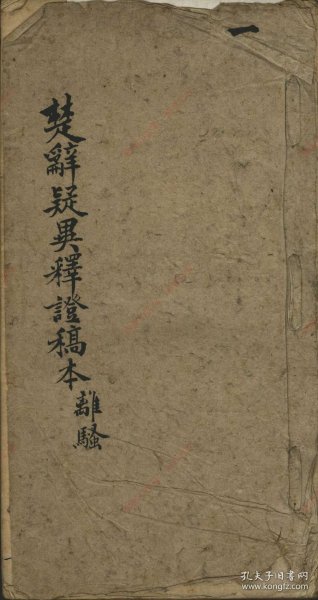 一
楚辭疑異釋證稿本 離騷
孔夫子旧书网
www.kongfz.com